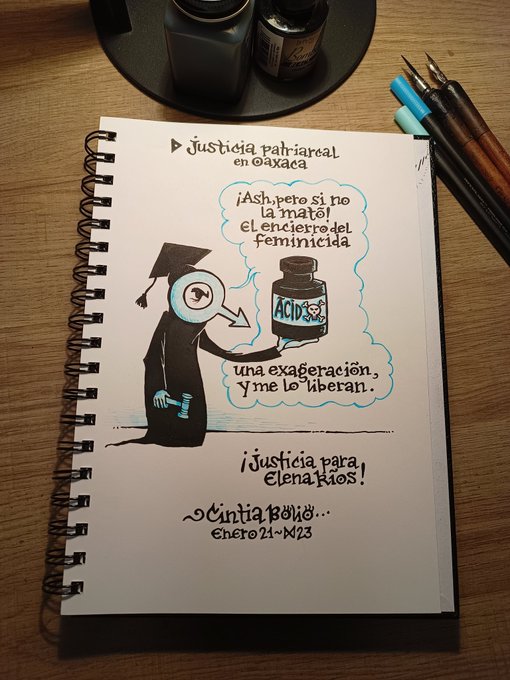 Justicia patriarcal
en Oaxaca
¡Ash, pero si no
la mató!
El encierro del
feminicida
ACID
una exageración,
y me lo liberan.
¡Justicia para
Elena Ríos!
Cintia Bolio...
Enero 21~23